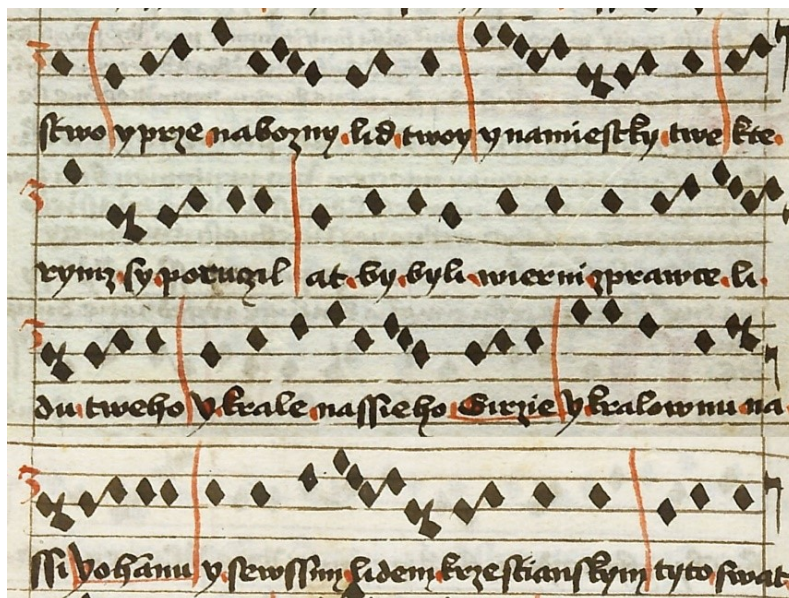 stwo y prze nabozny lid twoy y namiestky twe kte
rymz sy poruczil at by byli wierni zprawce li
du tweho y krale nassieho Girzie y kralownu na
ssi yohanu y sewssim lidem krzestianskym tyto swat